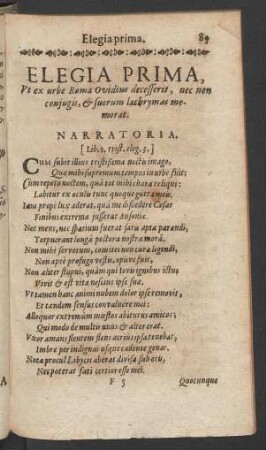 Elegia prima. 89
ELEGIA PRIMA,
Vt ex urbe Roma Ovidius decesserit, nec non
conjugis, & suorum lachrymas me-
morat.
NARRATORIA,
[Lib.1. trist. eleg. 3.]
CUm subit illius tristissima noctis imago,
Quæ mihi supremum tempus in urbe fuit:
Cum repeto noctem, quâ tot mihi chara reliqui:
Labitur ex oculis tunc quoque gutta meis.
Iam propè lux aderat, quâ me discedere Cæsar
Finibus extremæ jusserat Ausoniæ.
Nec mens, nec spacium fuerat satis apta parandi,
Torpuerant longâ pectora nostra morâ.
Non mihi servorum, comites non cura legendi,
Non apta profugo vestis, opisve fuit.
Non aliter stupui, quàm qui Iovis ignibus ictus,
Vivit & est vitæ nescius ipse suæ.
Vt tamen hanc animi nubem dolor ipse removit,
Et tandem sensus convaluêre mei:
Alloquor extremùm mæstos abiturus amicos:
Qui modo de multis unus & alter erat.
Vxor amans flentem flens acrius ipsa tenebat,
Imbre per indignas usque cadente genas.
Nata procul Libycis aberat diversa sub oris,
Nec poterat fati certior esse mei.
F 5 Quocunque